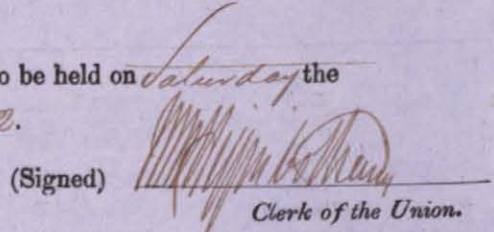 o be held on Saturday the
2.
(Signed)
Clerk of the Union.